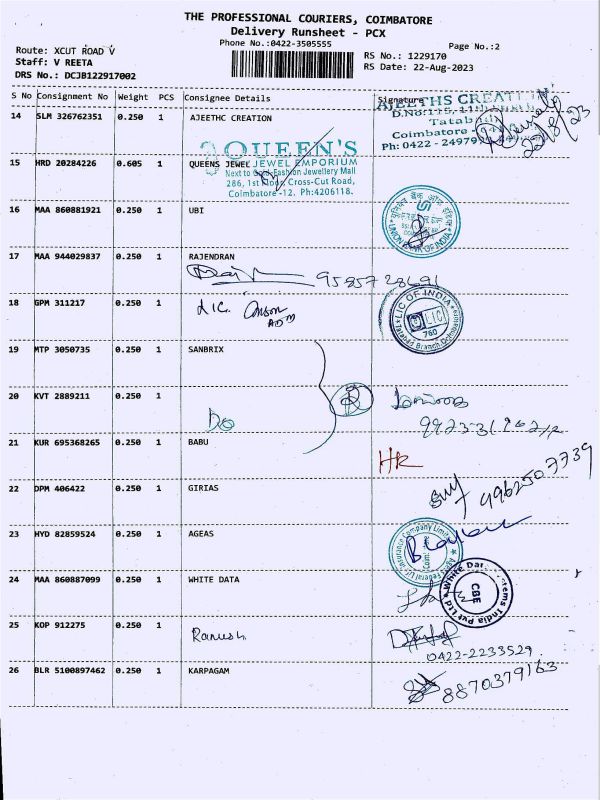 THE PROFESSIONAL COURIERS, COIMBATORE
Delivery Runsheet - PCX
Phone No.:0422-3505555
Page No.:2
Route: XCUT ROAD V
Staff: V REETA
DRS No.: DCJB122917002
RS No.: 1229170
RS Date: 22-Aug-2023
S No Consignment No Weight PCS Consignee Details Signature
14 SLM 326762351 0.250 1 AJEETHC CREATION
AJEETHS CREATION
Tatabad
Coimbatore
Ph: 0422 - 24979
22/8/23
QUEEN'S
15 HRD 20284226 0.605 1 QUEENS JEWEL
JEWEL EMPORIUM
Next to Gold Fashion Jewellery Mall
286, 1st Floor, Cross-Cut Road,
Coimbatore-12. Ph:4206118.
16 MAA 860881921 0.250 1 UBI
यूनियन बैंक ऑफ इंडिया
UNION BANK OF INDIA
17 MAA 944029837 0.250 1 RAJENDRAN
9585728691
18 GPM 311217 0.250 1
LIC.
LIC OF INDIA
LIC
760
19 MTP 3050735 0.250 1 SANBRIX
20 KVT 2889211 0.250 1
Do
21 KUR 695368265 0.250 1 BABU
HR
22 DPM 406422 0.250 1 GIRIAS
9962507739
23 HYD 82859524 0.250 1 AGEAS
24 MAA 860887099 0.250 1 WHITE DATA
CBE
25 KOP 912275 0.250 1
0422-2233529
26 BLR 5100897462 0.250 1 KARPAGAM
8870379163